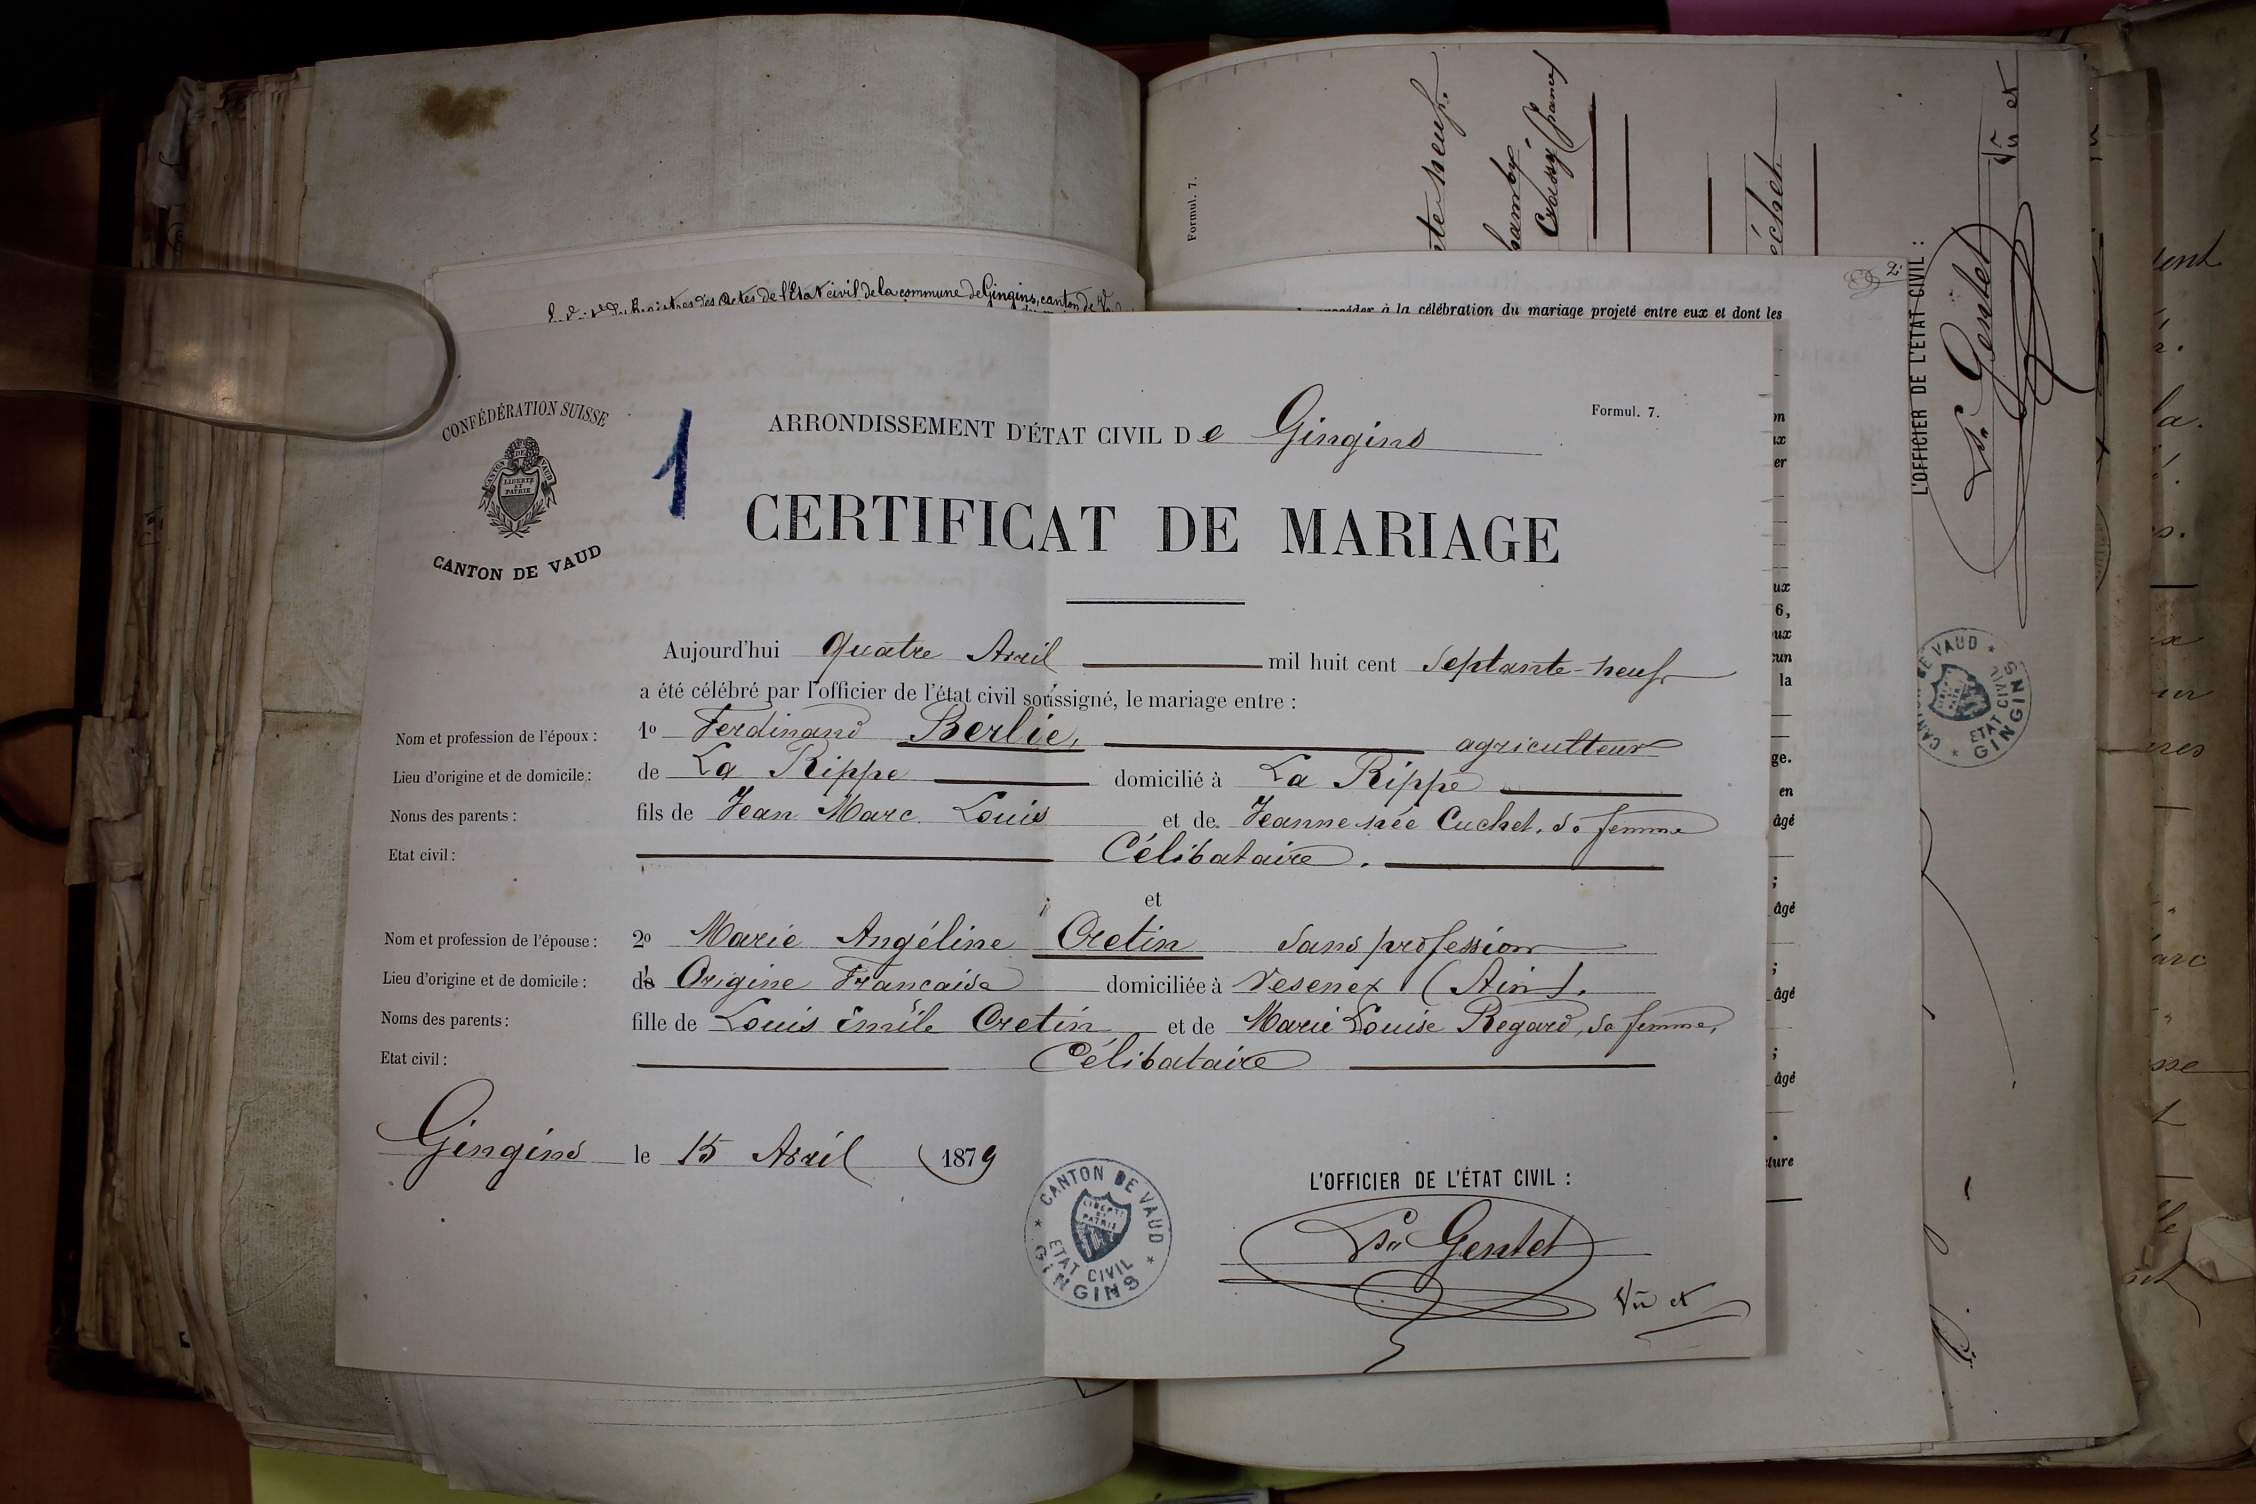 Registres des Actes de l'Etat civil de la commune de Gingins, canton de
à la célébration du mariage projeté entre eux et dont les
Formul. 7.
Crassy (france)
L'OFFICIER DE L'ÉTAT CIVIL :
Gentet
Vu et
CANTON DE VAUD
LIBERTÉ ET PATRIE
ETAT CIVIL
GINGINS
CONFÉDÉRATION SUISSE
CANTON DE VAUD
LIBERTÉ ET PATRIE
CANTON DE VAUD
1
ARRONDISSEMENT D'ÉTAT CIVIL De Gingins
Formul. 7.
CERTIFICAT DE MARIAGE
Aujourd'hui Quatre Avril mil huit cent Septante-neuf
a été célébré par l'officier de l'état civil soussigné, le mariage entre :
Nom et profession de l'époux : 1o Ferdinand Berlie, agriculteur
Lieu d'origine et de domicile : de La Rippe domicilié à La Rippe
Noms des parents : fils de Jean Marc Louis et de Jeanne née Cuchet, sa femme
Etat civil : Célibataire.
et
Nom et profession de l'épouse : 2o Marie Angéline Cretin sans profession
Lieu d'origine et de domicile : d' Origine Francaise domiciliée à Vesenex (Ain).
Noms des parents : fille de Louis Émile Cretin et de Marie Louise Regard, sa femme,
Etat civil : Célibataire
Gingins le 15 Avril 1879
CANTON DE VAUD
LIBERTÉ ET PATRIE
ETAT CIVIL
GINGINS
L'OFFICIER DE L'ÉTAT CIVIL :
Gentet
Vu et